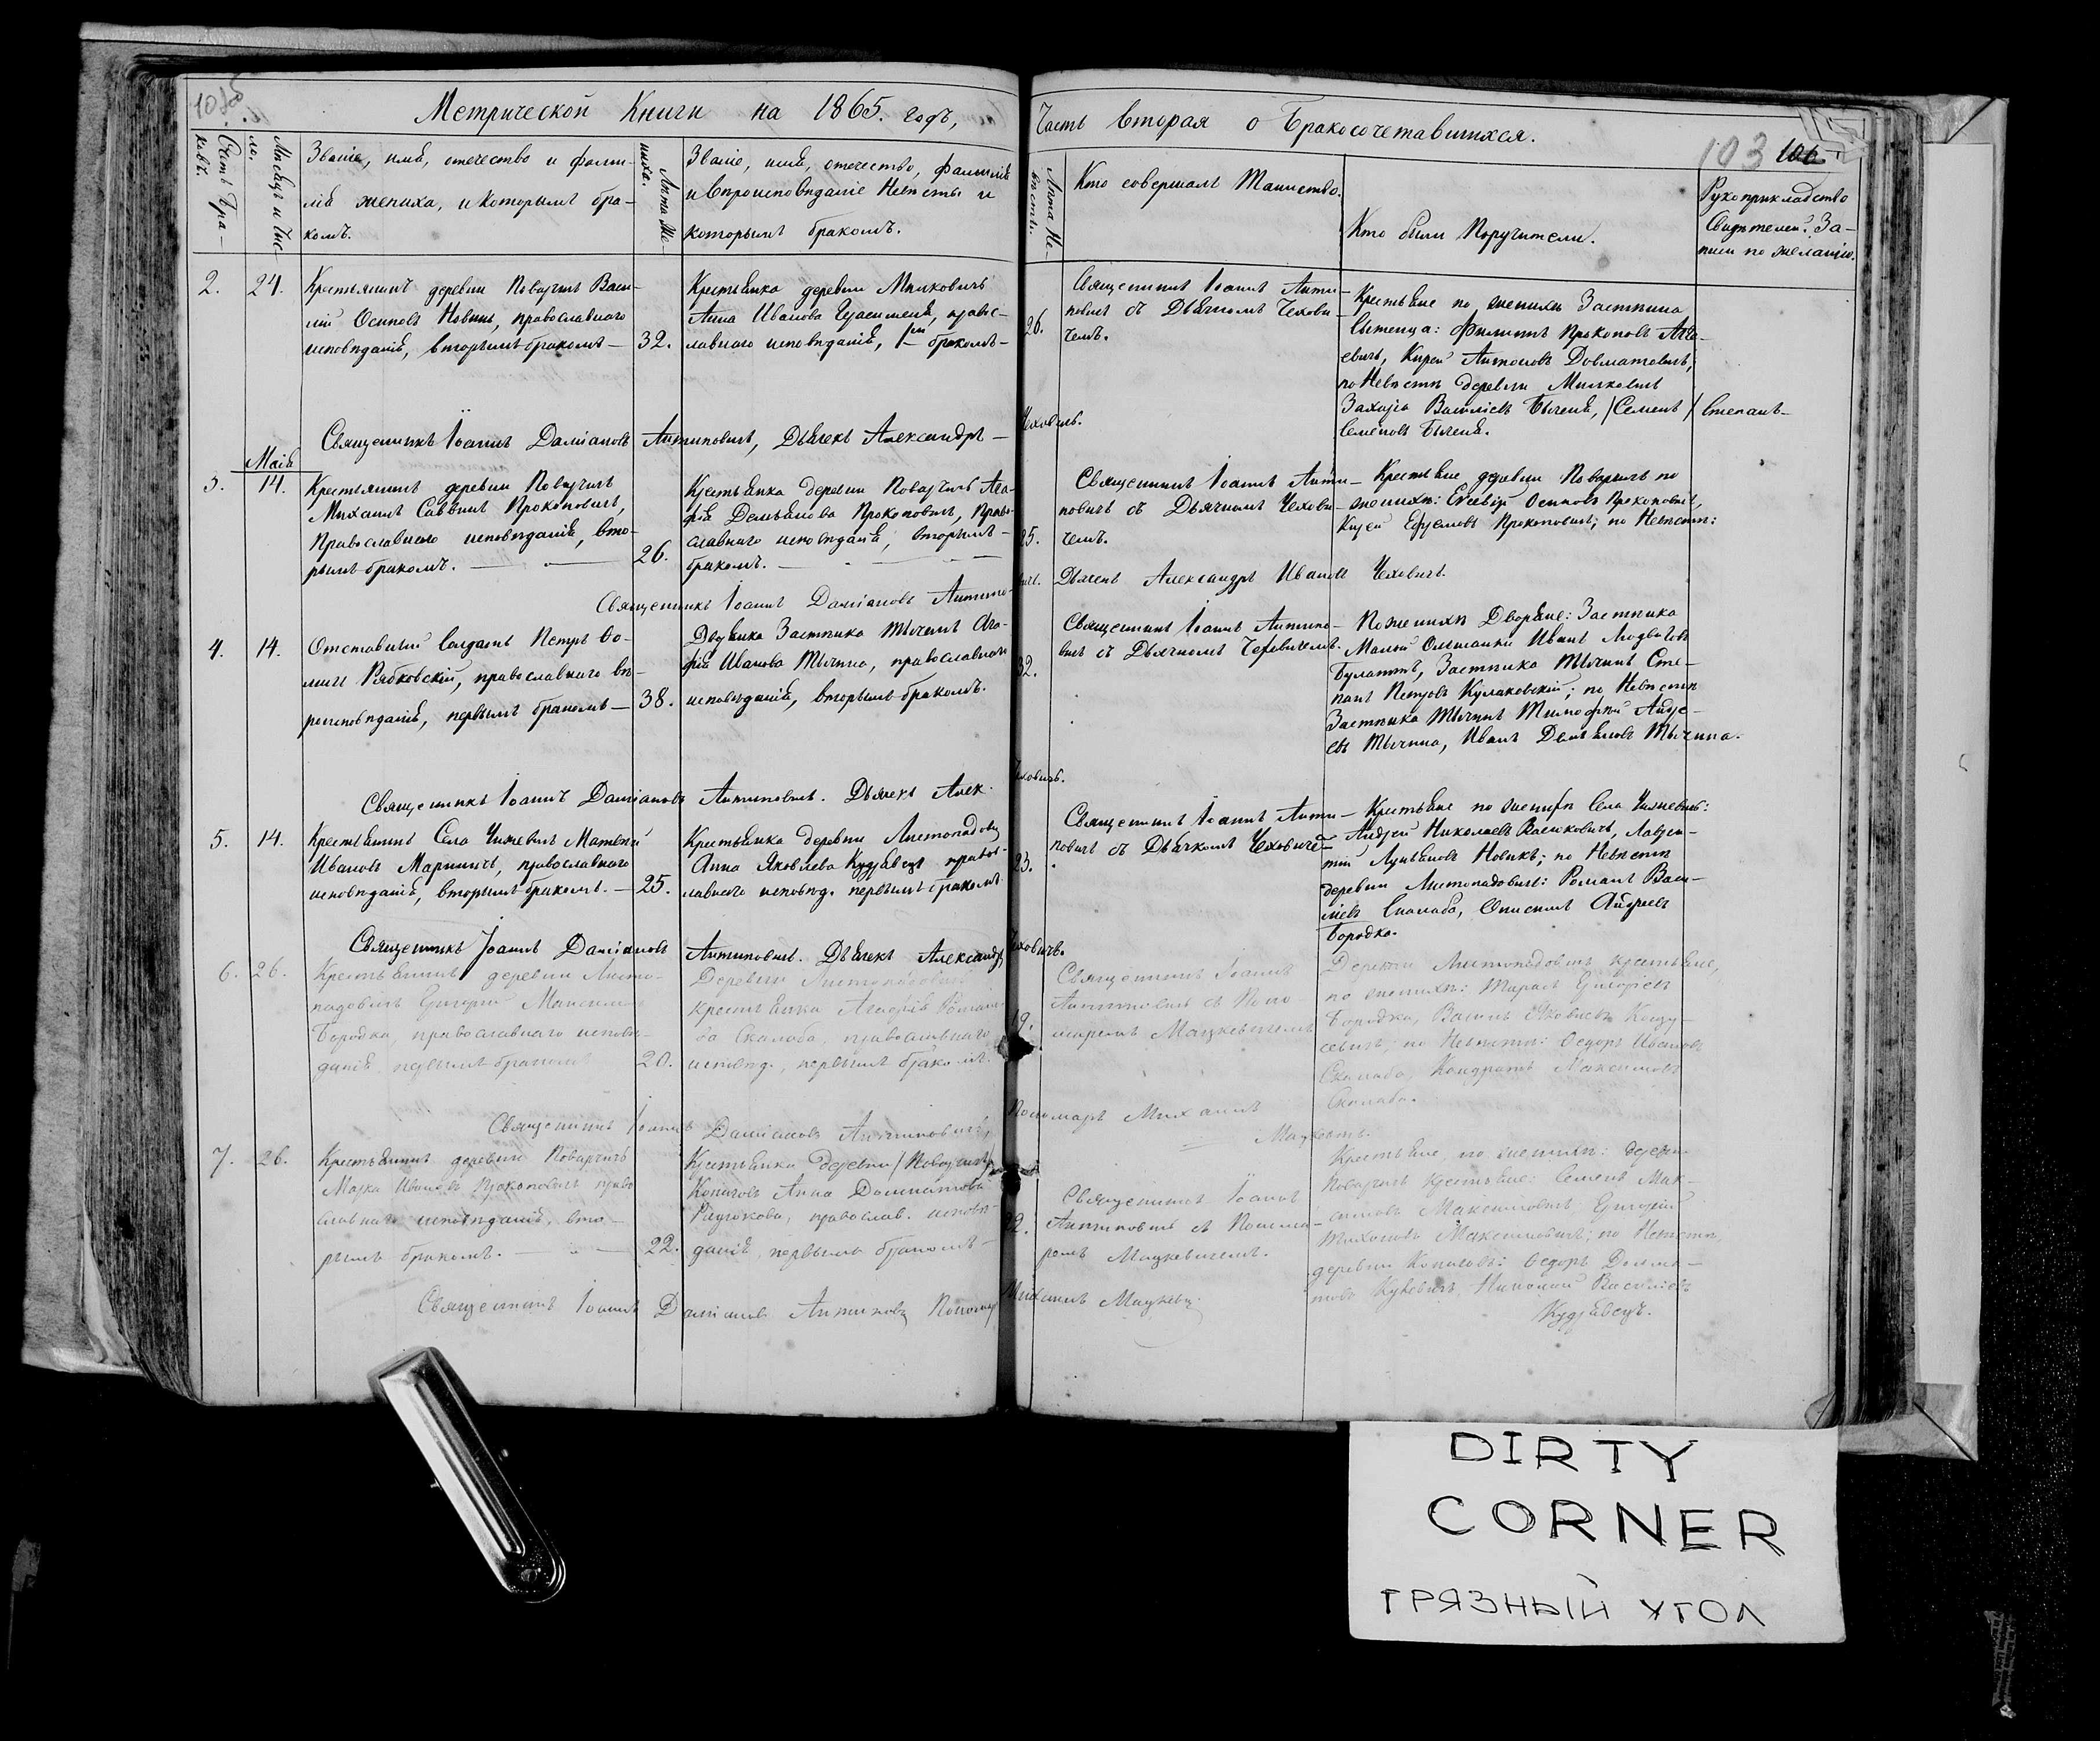 Метрической Книги на 1865. годъ,
Часть вторая о Бракосочетавшихся.
103 106
Счетъ бра-
ковъ.
Мѣсяцъ и чис-
ло.
Званіе, имя, отечество и фами-
лія жениха, и которымъ бра-
комъ.
Лѣта Же-
ниха.
Званіе, имя, отечество, фамилія
и вѣроисповѣданіе Невѣсты и
которымъ бракомъ.
Лѣта Не-
вѣсты.
Кто совершалъ Таинство.
Кто были Поручители.
Рукоприкладство
Свидѣтелей За-
писи по желанію.
2. 24.
Крестьянинъ деревни Поварчичъ Васи-
лій Осиповъ Новикъ, православнаго
исповѣданія, вторымъ бракомъ —
32.
Крестьянка деревни Милковичъ
Анна Иванова, правос-
лавнаго исповѣданія, 1мъ бракомъ —
26.
Священникъ Іоаннъ Анти-
повичъ съ Дьячкомъ Чехови-
чемъ.
Крестьяне по женихѣ Застѣнка
Филиппъ Прокоповъ
евичъ, Кирей Антоновъ Довматовичъ;
по Невѣстѣ деревни Милковичъ
Захарій Василіевъ Быченя, (Семенъ) Степанъ
Семеновъ Быченя.
Священникъ Іоаннъ Даміановъ Антиповичъ, Дьячекъ Александръ — Чеховичъ.
Маія
3. 14.
Крестьянинъ деревни Поварчичъ
Михаилъ Саввинъ Прокоповичъ,
Православнаго исповѣданія, вто-
рымъ бракомъ. —
26.
Крестьянка деревни Поварчичъ Ага-
фія Демьянова Прокоповичъ, Право-
славнаго исповѣданія, вторымъ —
бракомъ. —
25.
Священникъ Іоаннъ Анти-
повичъ съ Дьячкомъ Чехови-
чемъ.
Крестьяне деревни Поварчичъ по
женихѣ: Евсевій Осиповъ Прокоповичъ,
Кирей Ефремовъ Прокоповичъ; по Невѣстѣ:
Священникъ Іоаннъ Даміановъ Антипо-
вичъ. Дьячекъ Александръ Ивановъ Чеховичъ.
4. 14.
Отставный Солдатъ Петръ Ѳо-
минъ Рябковскій, православнаго вѣ-
роисповѣданія, первымъ бракомъ —
38.
Дворянка Застѣнка Тычинъ Ага-
фія Иванова Тычина, православнаго
исповѣданія, вторымъ бракомъ.
32.
Священникъ Іоаннъ Антипо-
вичъ съ Дьячкомъ Чеховичемъ.
По женихѣ Дворяне: Застѣнка
Малой Ольшанки Иванъ Людвиговъ
Булатъ, Застѣнка Тычинъ Сте-
панъ Петровъ Кулаковскій; по Невѣстѣ
Застѣнка Тычинъ Тимофей Андре-
евъ Тычина, Иванъ Демьяновъ Тычина.
Священникъ Іоаннъ Даміановъ Антиповичъ. Дьячекъ Алек. Чеховичъ.
5. 14.
Крестьянинъ Села Чижевичъ Матвей
Ивановъ Мариничъ, православнаго
исповѣданія, вторымъ бракомъ. —
25.
Крестьянка деревни Листопадовичъ
Анна Яковлева Кудравецъ правос-
лавнаго исповѣд. первымъ бракомъ
23.
Священникъ Іоаннъ Анти-
повичъ съ Дьячкомъ Чеховиче-
Крестьяне по женихѣ Села Чижевичъ:
Андрей Николаевъ Васьковичъ, Лаврен-
тій Лукьяновъ Новикъ; по Невѣстѣ
деревни Листопадовичъ: Романъ Васи-
ліевъ Скалаба, Онисимъ Андреевъ
Бородко.
Священникъ Іоаннъ Даміановъ Антиповичъ. Дьячекъ Александръ Чеховичъ.
6. 26.
Крестьянинъ деревни Листо-
падовичъ Григорій Максимовъ
Бородка, православнаго исповѣ-
данія, первымъ бракомъ
20.
Деревни Листопадовичъ
крестьянка Агафія Романо-
ва Скалаба, православнаго
исповѣд., первымъ бракомъ.
19.
Священникъ Іоаннъ
Антиповичъ съ Поно-
маремъ Мацкевичемъ
Деревни Листопадовичъ крестьяне,
по женихѣ: Тарасъ Григорьевъ
Бородка, Василь Яковлевъ
по Невѣстѣ: Ѳедоръ Ивановъ
Скалаба, Кондратъ Максимовъ
Скалаба.
Священникъ Іоаннъ Даміановъ Антиповичъ, Пономарь Михаилъ
Мацкевичъ.
7. 26.
Крестьянинъ деревни Поварчичъ
Марко Ивановъ Прокоповичъ право-
славнаго исповѣданія, вто-
рымъ бракомъ. —
22.
Крестьянка деревни (Поварчичъ)
Копачовъ Анна Доминикова
православ. исповѣ-
данія, первымъ бракомъ —
22.
Священникъ Іоаннъ
Антиповичъ съ Понома-
ремъ Мацкевичемъ.
Крестьяне, по женихѣ: деревни
Поварчичъ Крестьяне: Семенъ Мак-
симовъ Максимовичъ, Григорій
Тихоновъ Максимовичъ; по Невѣстѣ,
деревни Копачовъ: Ѳедоръ
Николай Василіевъ
Кудравецъ.
Священникъ Іоаннъ Даміановъ Антиповичъ Пономарь Михаилъ Мацкевичъ
DIRTY
CORNER
ГРЯЗНЫЙ УГОЛ